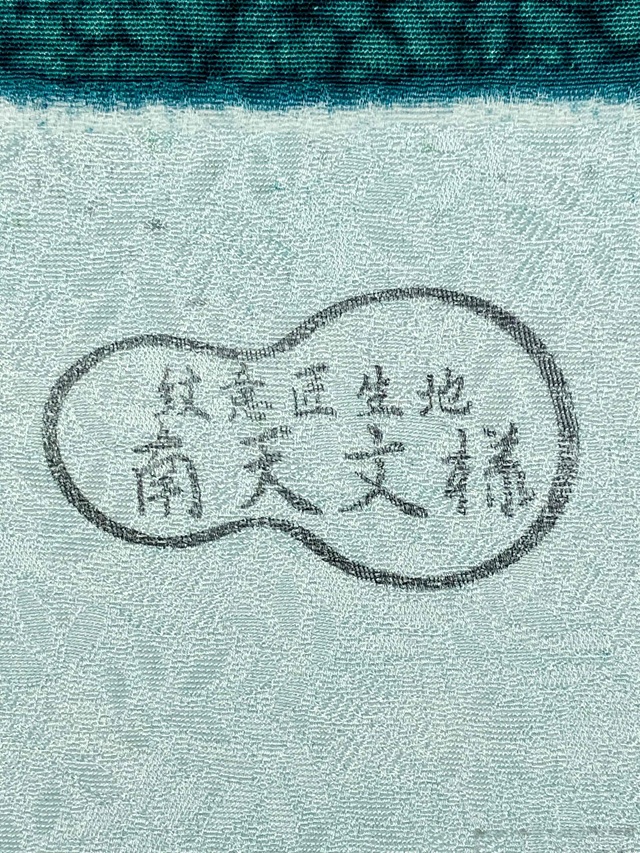 紋意匠生地
南天文様